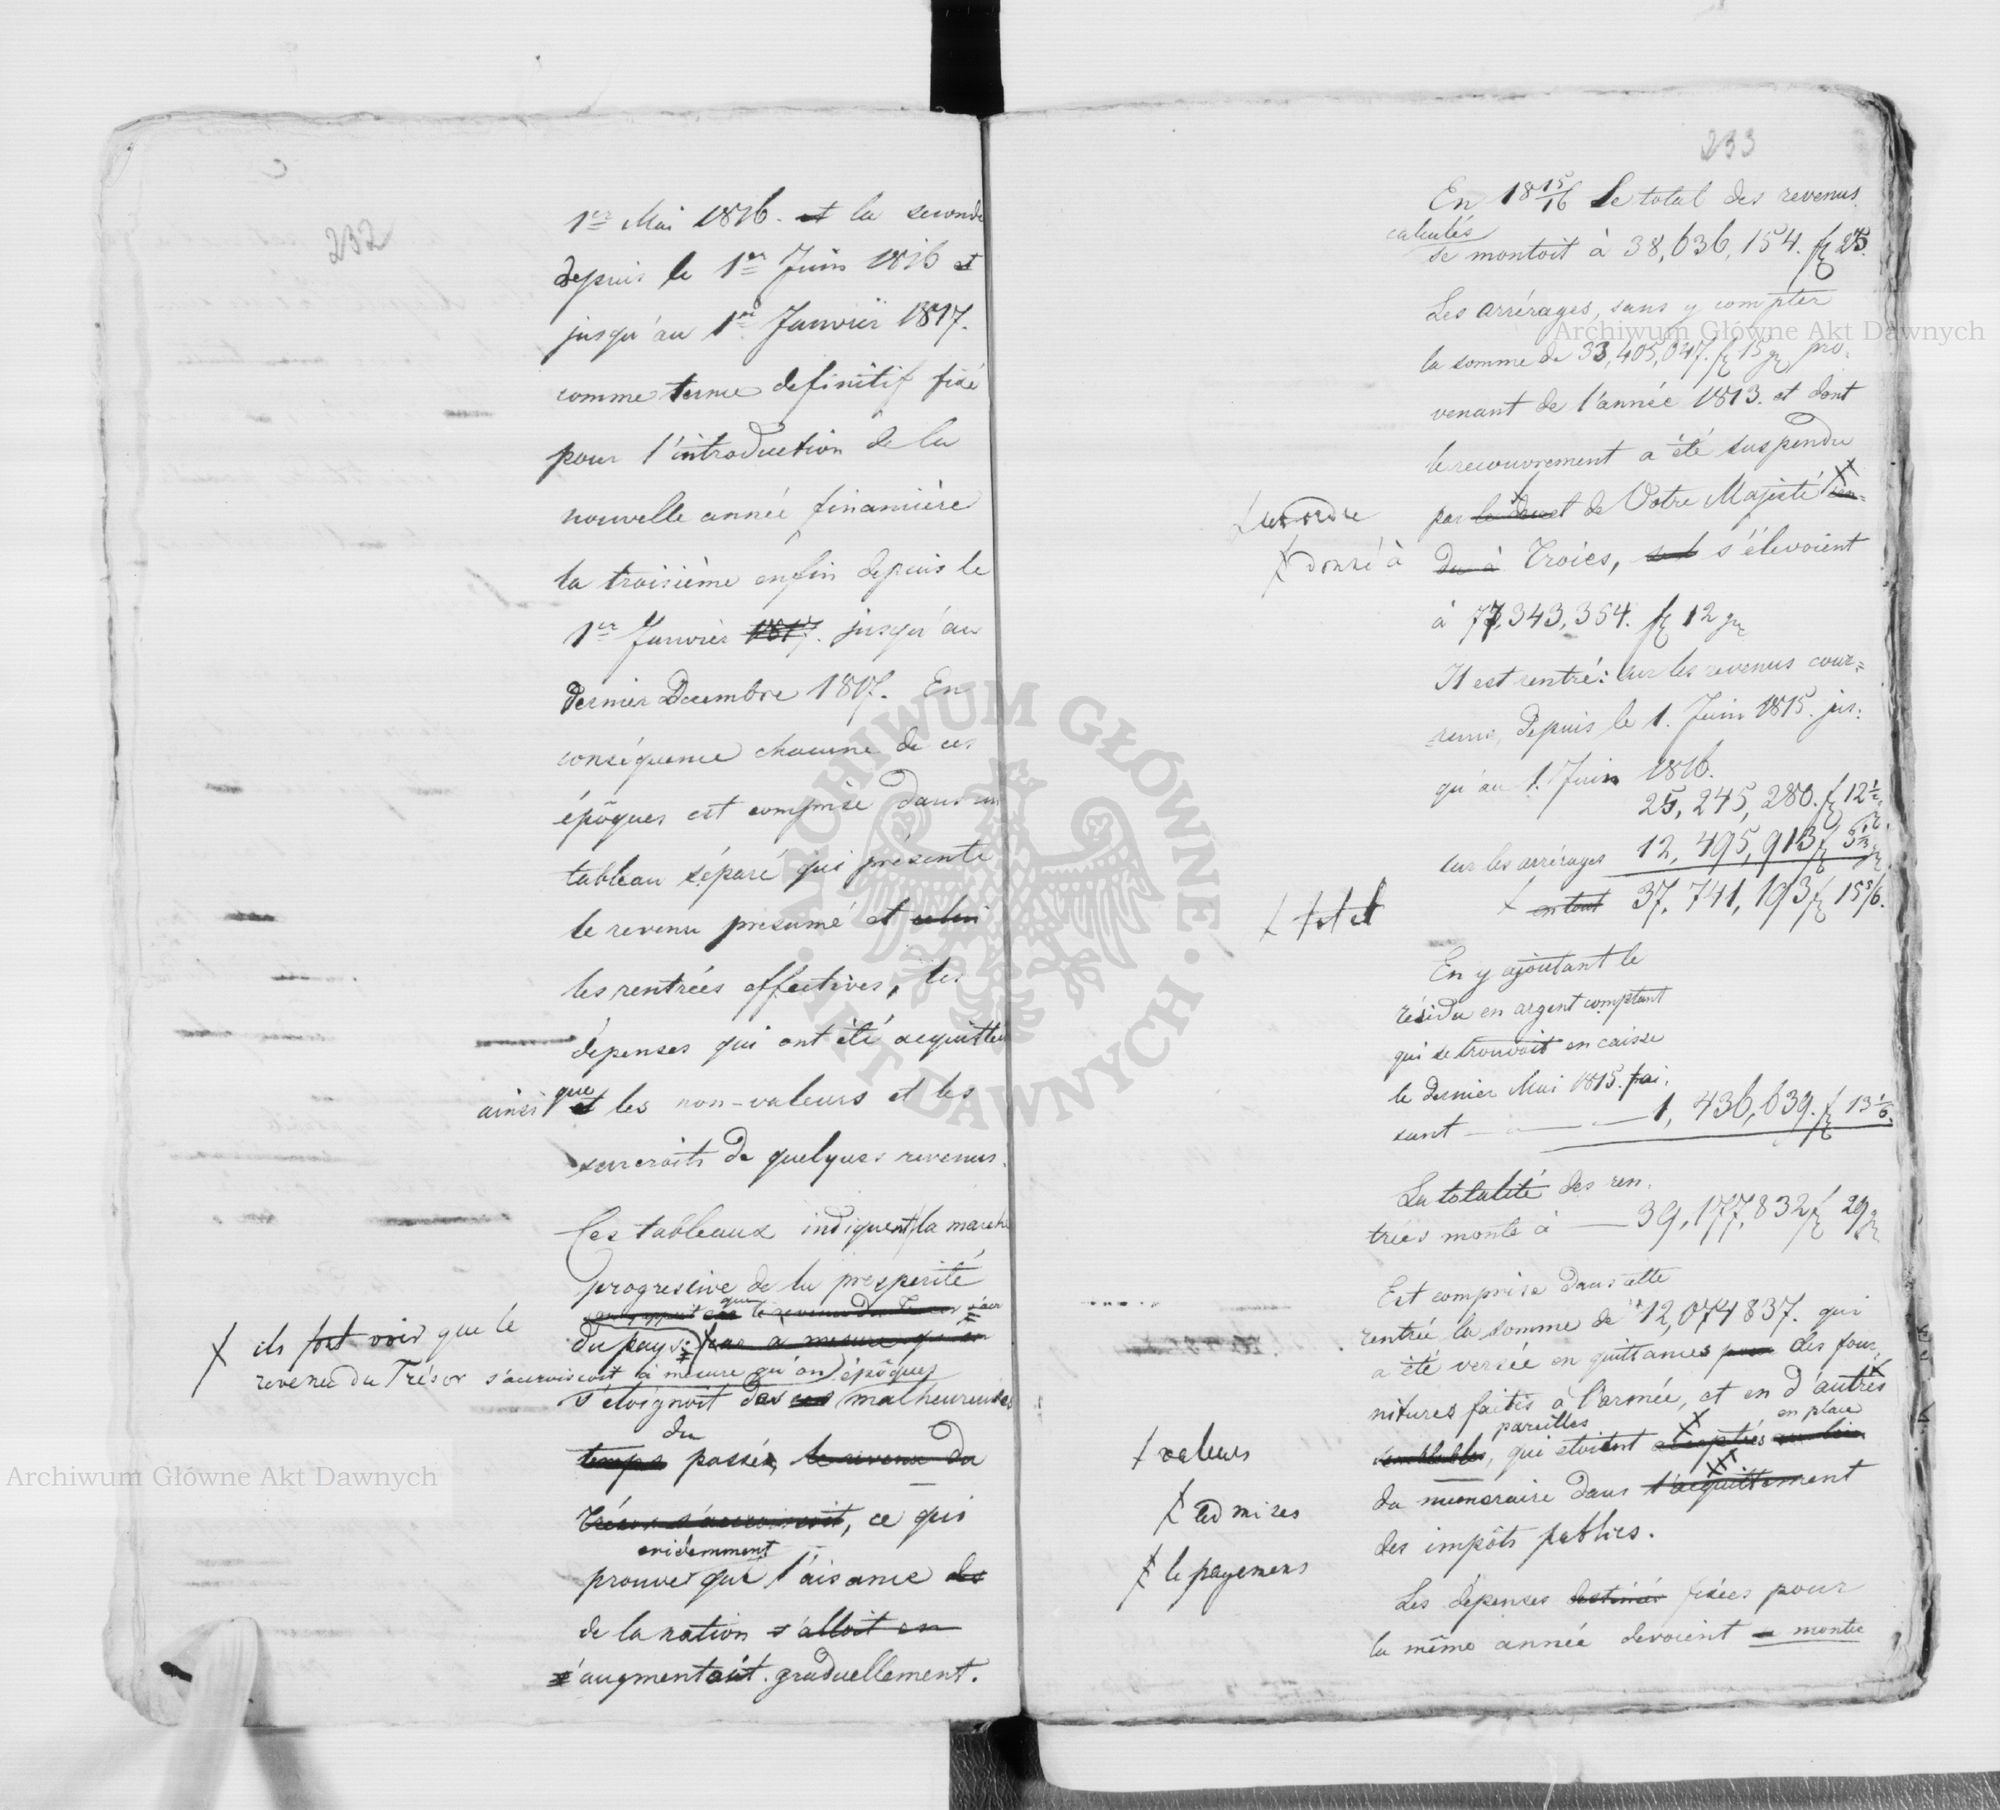 232
1er Mai 1816. et la seconde
depuis le 1er Juin 1816 et
jusqu'au 1er Janvier 1817.
comme terme definitif fixé
pour l'introduction de la
nouvelle année financière
la troisième enfin depuis le
1er Janvier 1817. jusqu'au
dernier Decembre 1817. En
conséquence chacune de ces
épôques est comprise dans un
tableau séparé qui présente
le revenu présumé et celui
les rentrées effectives, les
dépenses qui ont été acquittées
ainsi que et les non-valeurs et les
surcroits de quelques revenus.
Ces tableaux indiquent la marche
progressive de la prosperité
que le revenu du
du pays: a mesure qu'on
ils font voir que le
revenu du Trésor s'accroissoit à mesure qu'on époques
s'éloignoit des ces malheureuses
du
temps passé, le revenu du
Trésor s'accroissoit, ce qui
evidemment
prouve que l'aisance de
de la nation s'alloit en
s'augmentoit graduellement.
233
En 1815/16 le total des revenus
calculés
se montoit à 38,636,154. f 25.
Les arrérages, sans y compter
la somme de 33,405,047. f 15 gr pro-
venant de l'année 1813. et dont
le recouvrement a été suspendu
par le decret de Votre Majesté ren-
ordre
donné à
du à Troies, s'élevoient
à 77,343,354. f 12 gr
Il est rentré: sur les revenus cour=
rens, depuis le 1. Juin 1815. jus-
qu'au 1. Juin 1816.
25,245,280. f 12 1/2
sur les arrérages 12,495,913 f 3 1/3 gr
total
en tout 37,741,193 f 15 5/6.
En y ajoutant le
résidu en argent comptant
qui se trouvoit en caisse
le dernier Mai 1815. fai-
sant — 1,436,639. f 13 1/6.
La totalité des ren-
trées monte à — 39,177,832 f 29 gr
Est comprise dans cette
rentrée la somme de 12,074,837. qui
a été versée en quittances pour des four-
nitures faites à l'armée, et en d'autres
pareilles en place
valeurs
semblables, que étoient acceptés au lieu
admises
du numeraire dans l'acquittement
le payemens
des impôts publics.
Les dépenses destinées fixées pour
la même année devoient monter
Archiwum Główne Akt Dawnych
Archiwum Główne Akt Dawnych
ARCHIWUM GŁÓWNE · AKT DAWNYCH ·